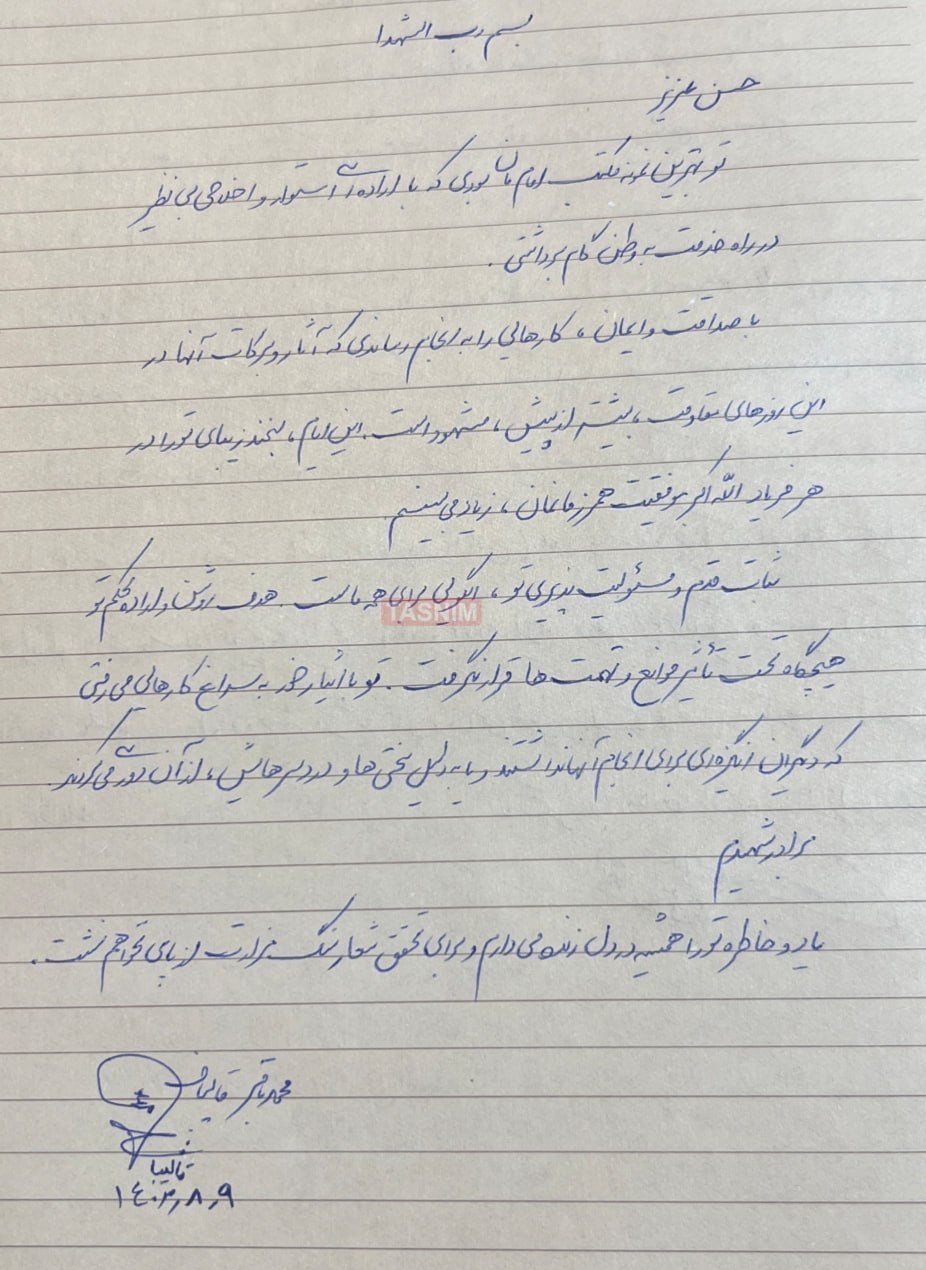 بسم رب الشهدا
حسن عزیز
تو بهترین نمونه مکتب امام مان بودی که با اراده ای استوار و اخلاصی بی نظیر
در راه خدمت به وطن گام برداشتی .
با صداقت و ایمان ، کارهایی را به انجام رساندی که آثار و برکات آنها در
این روزهای مقاومت ، بیشتر از پیش ، مشهود است . این ایام ، لبخند زیبای تو را در
هر فریاد الله اکبر موفقیت همرزمانمان ، زیاد می بینیم
ثبات قدم و مسئولیت پذیری تو ، الگویی برای همه ماست . هدف روشن و اراده محکم تو
TASNIM
هیچگاه تحت تأثیر موانع و تهمت ها قرار نگرفت . تو با ایثار خود به سراغ کارهایی می رفتی
که دیگران انگیزه ای برای انجام آنها نداشتند و یا به دلیل سختی ها و دردسرهایش ، از آن دوری می کردند.
برادر شهیدم
یاد و خاطره تو را همیشه در دل زنده می دارم و برای تحقق شعار سنگ مزارت از پای نخواهم نشست .
محمد باقر قالیباف
قالیباف
۱۴۰۳٫۸٫۹